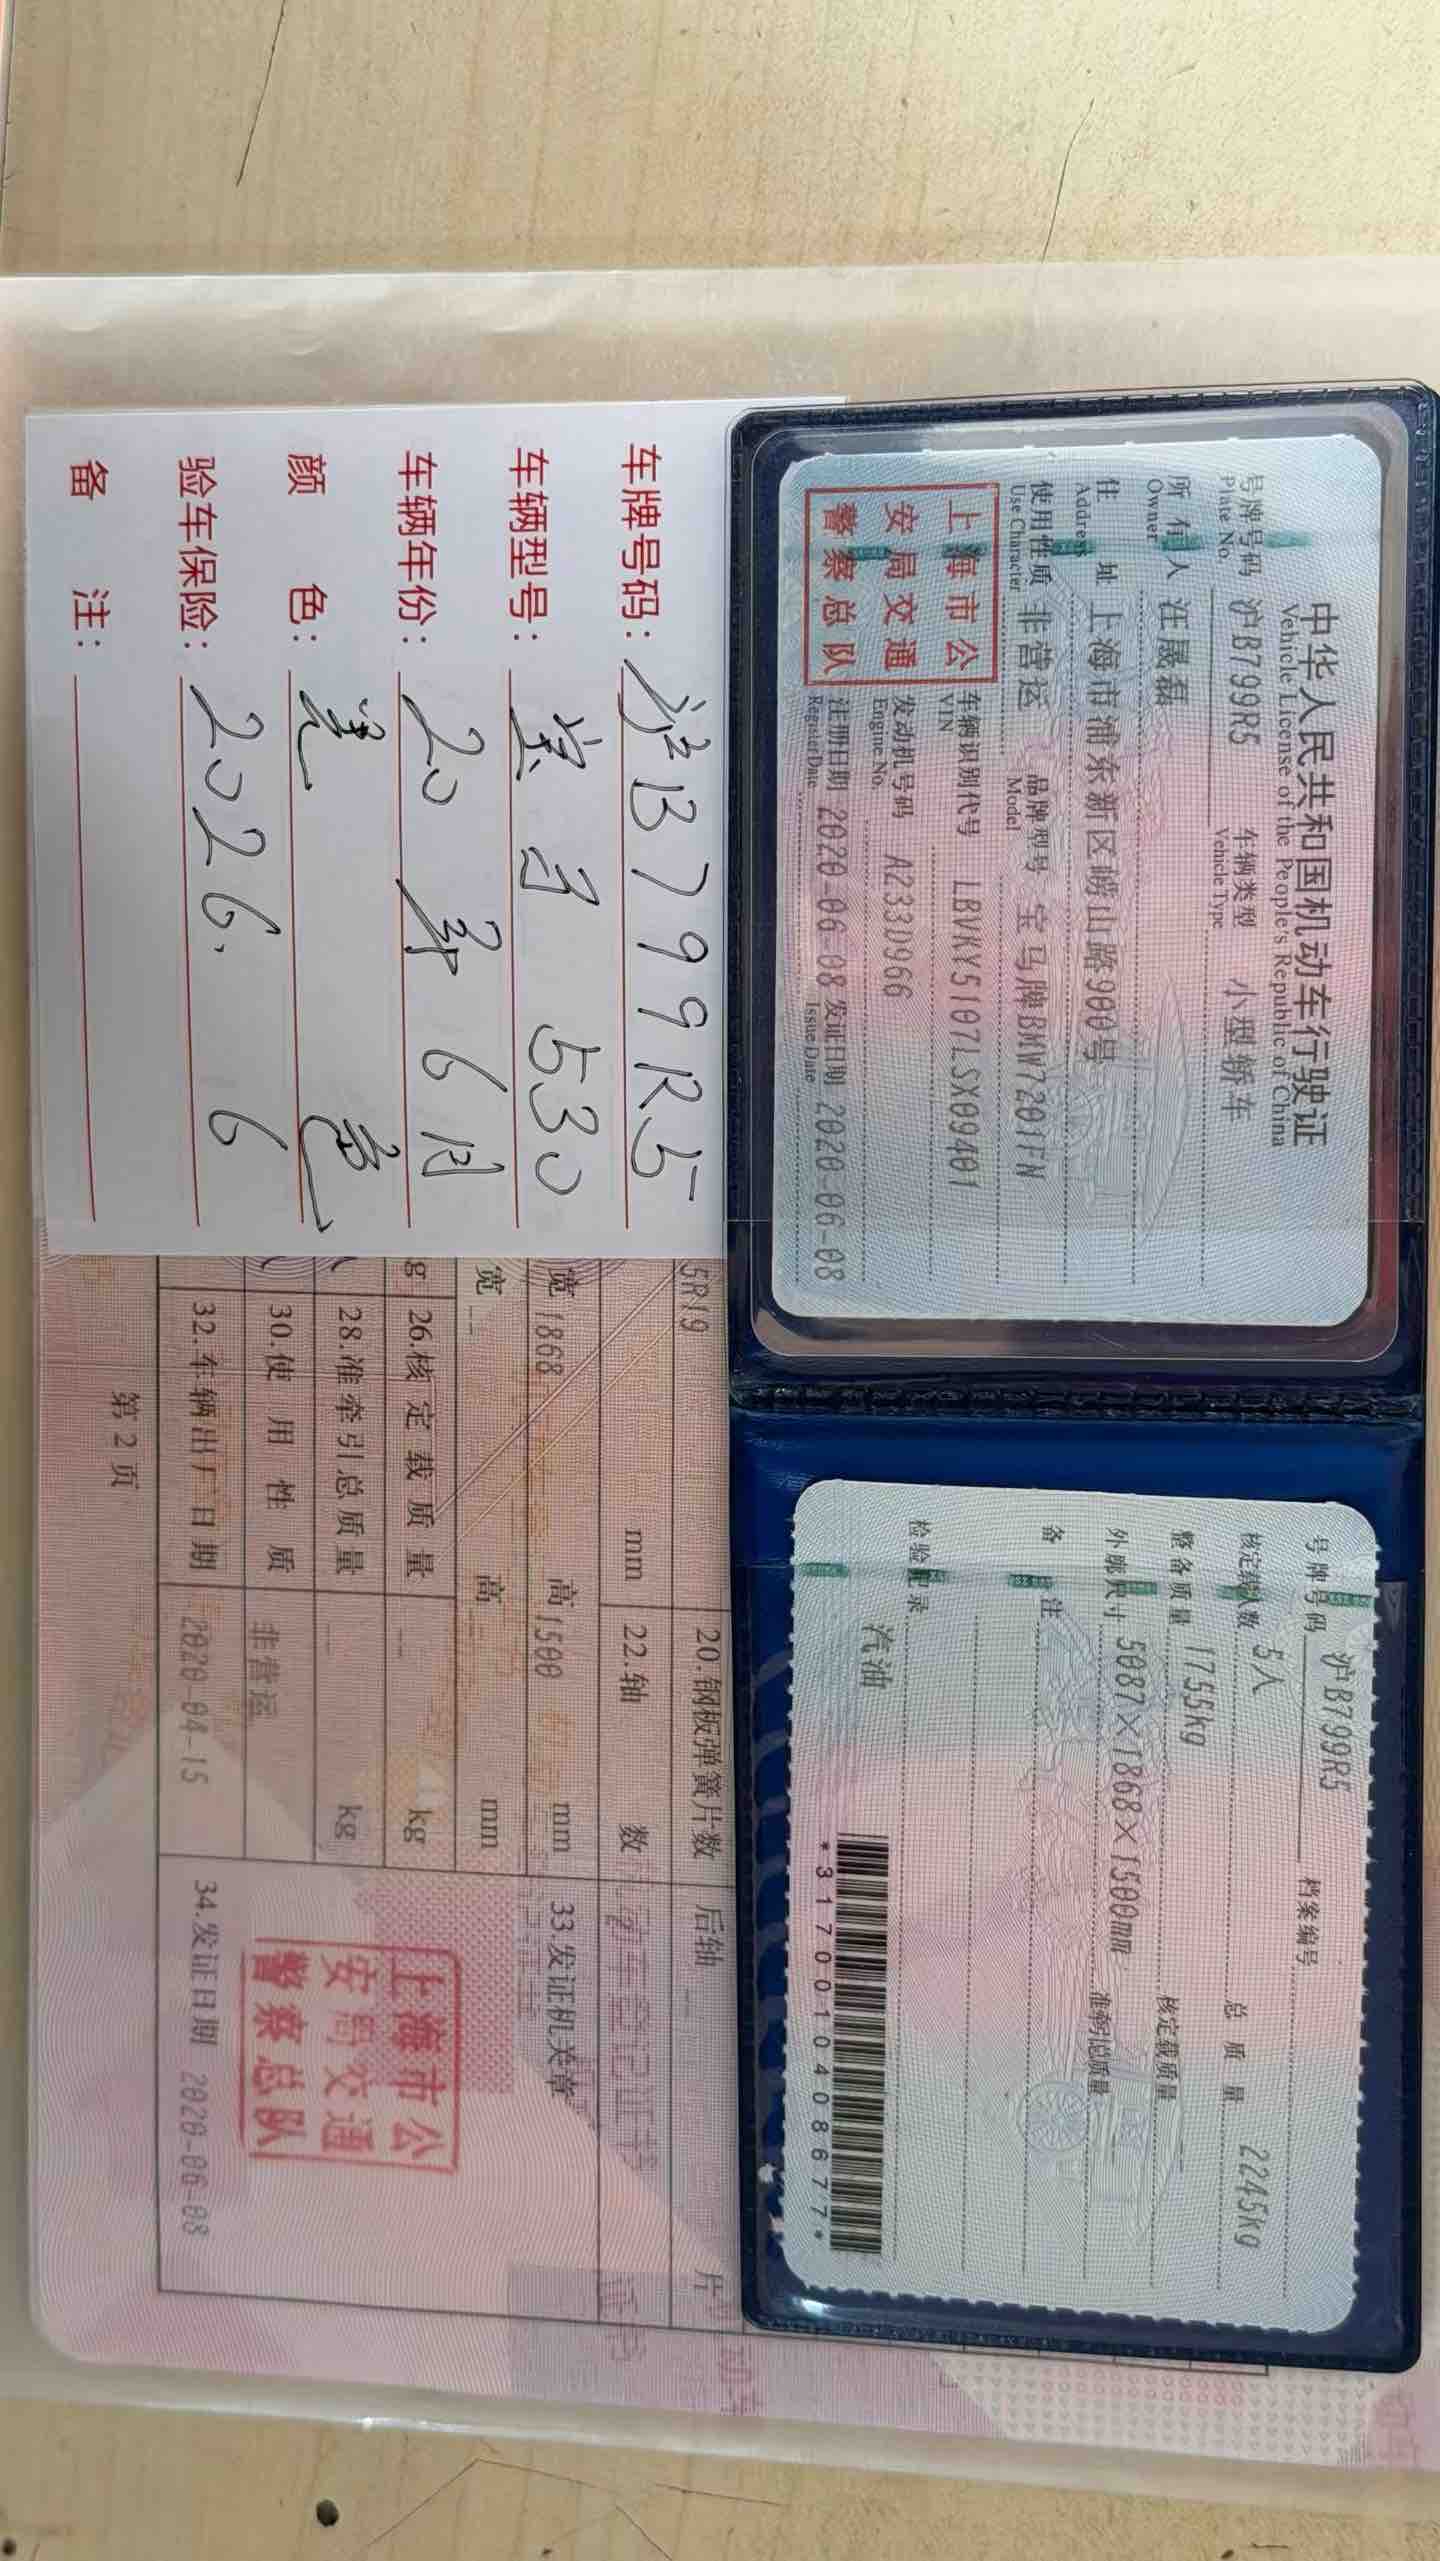 中华人民共和国机动车行驶证
Vehicle License of the People's Republic of China
号牌号码 沪B799R5 车辆类型 小型轿车
Plate No. Vehicle Type
所有人 汪晟磊
Owner
住址 上海市浦东新区崂山路900号
Address
使用性质 非营运 品牌型号 宝马牌BMW7201FN
Use Character Model
上海市公
安局交通
警察总队
车辆识别代号 LBVKY5107LSX09401
VIN
发动机号码 A233D966
Engine No.
注册日期 2020-06-08 发证日期 2020-06-08
Register Date Issue Date
号牌号码 沪B799R5 档案编号
核定载人数 5人 总质量 2245kg
整备质量 1755kg 核定载质量 --
外廓尺寸 5087×1868×1500mm 准牵引总质量 --
备注
检验记录
汽油
*3170010408677*
车牌号码: 沪B799R5
车辆型号: 宝马 530
车辆年份: 20年6月
颜色: 黑色
验车保险: 2026. 6
备注:
5R19 20.钢板弹簧片数 后轴 -- 片
mm 22.轴数
宽 1868 高 1500 mm 33.发证机关章
宽 -- 高 -- mm
g 26.核定载质量 -- kg
人 28.准牵引总质量 -- kg
30.使用性质 非营运
32.车辆出厂日期 2020-04-15 34.发证日期 2020-06-08
上海市公
安局交通
警察总队
第2页